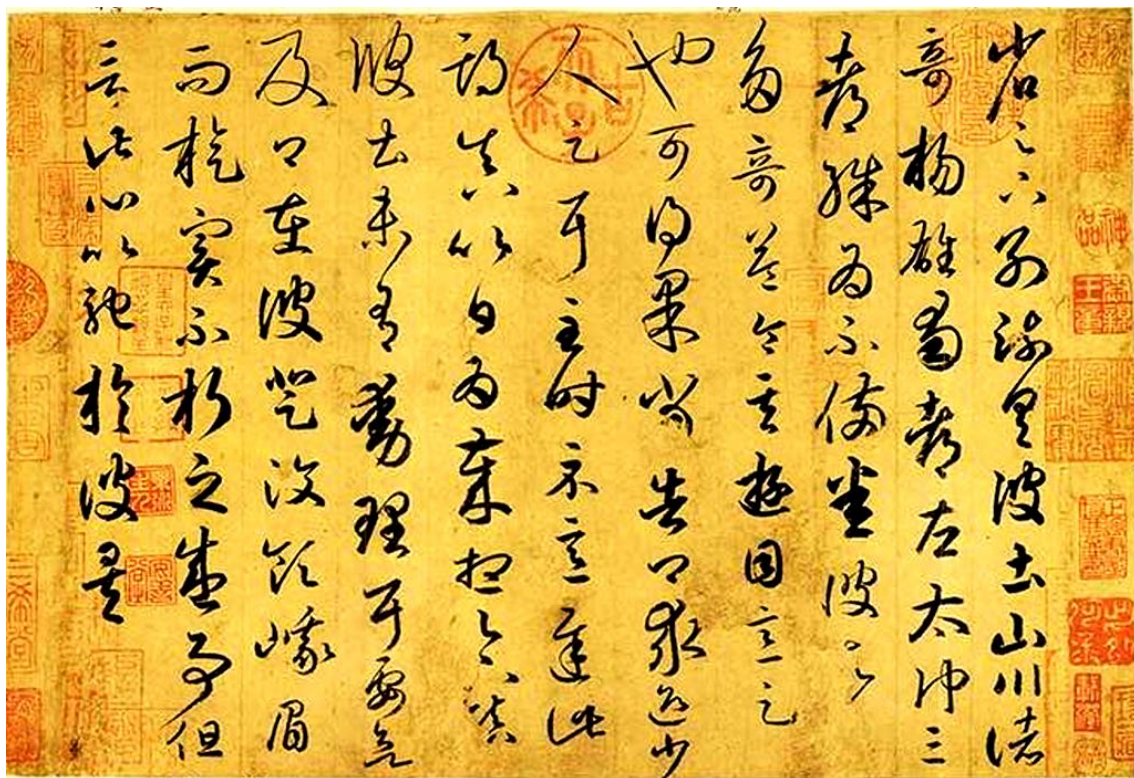 省足下別疏具彼土山川諸
奇楊雄蜀都左太沖三
都殊為不備悉彼故
多奇益令其遊目意足
也可得果當告卿求迎少
人足耳至時示意遲此
期真以日為歲想足下鎮
彼土未有動理耳要欲
及卿在彼登汶領峨眉
而旋實不朽之盛事但
言此心以馳於彼矣